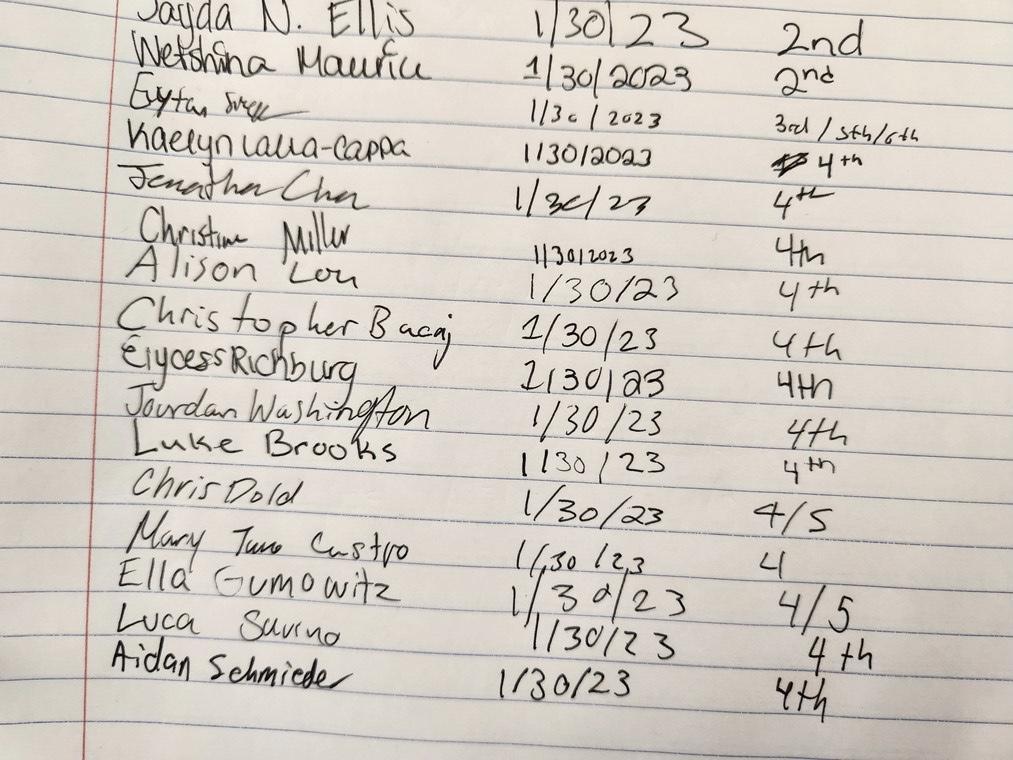 Jayda N. Ellis 1/30/23 2nd
Wetshina Maurice 1/30/2023 2nd
Eytan 1/30/2023 3rd/5th/6th
Kaelyn Lalla-Cappa 1/30/2023 4th
Jonathan Chen 1/30/23 4th
Christine Miller 1/30/2023 4th
Alison Lou 1/30/23 4th
Christopher Bacaj 1/30/23 4th
Eiycess Richburg 1/30/23 4th
Jourdan Washington 1/30/23 4th
Luke Brooks 1/30/23 4th
Chris Dold 1/30/23 4/5
Mary Jane Castro 1/30/23 4
Ella Gumowitz 1/30/23 4/5
Luca Savino 1/30/23 4th
Aidan Schmieder 1/30/23 4th